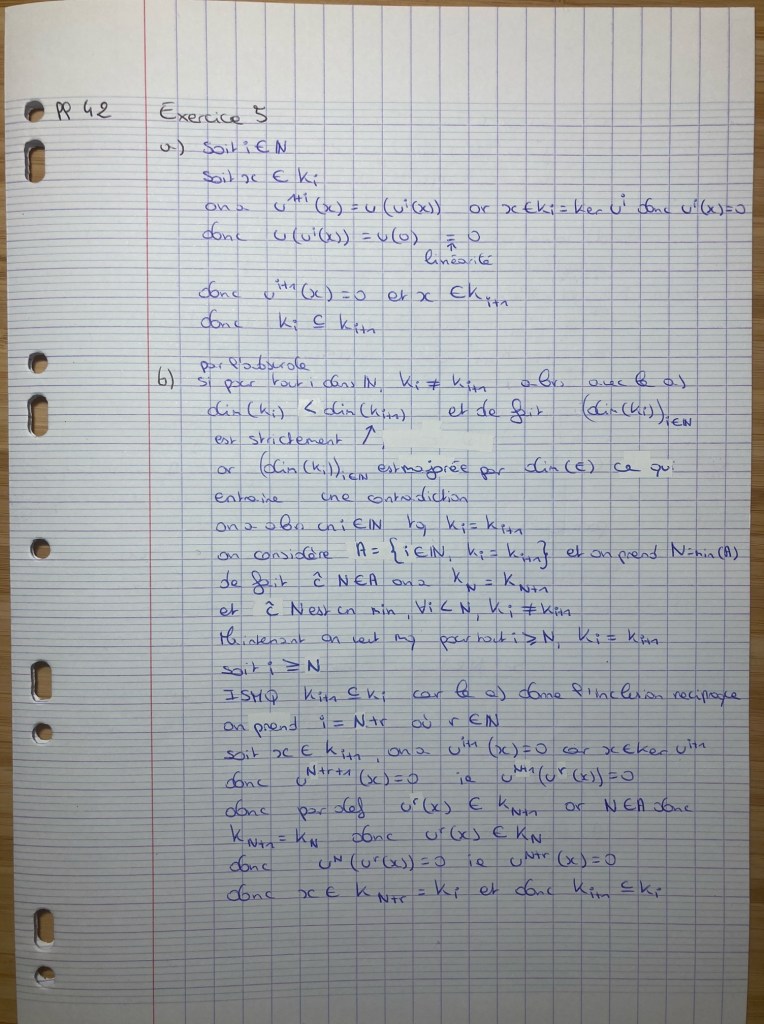 pp 42 Exercice 5
a) soit i ∈ N
soit x ∈ Ki
on a u^{1+i}(x) = u(u^i(x)) or x ∈ Ki = ker u^i donc u^i(x) = 0
donc u(u^i(x)) = u(0) = 0
↑
linéarité
donc u^{i+1}(x) = 0 et x ∈ K_{i+1}
donc Ki ⊆ K_{i+1}
par l'absurde
b) si pour tout i dans N, Ki ≠ K_{i+1} alors avec le a)
dim(Ki) < dim(K_{i+1}) et de fait (dim(Ki))_{i∈N}
est strictement ↗
or (dim(Ki))_{i∈N} est majorée par dim(E) ce qui
entraine une contradiction
on a alors un i ∈ N tq Ki = K_{i+1}
on considère A = {i ∈ N, Ki = K_{i+1}} et on prend N = min(A)
de fait c̄ N ∈ A on a K_N = K_{N+1}
et c̄ N est un min, ∀i < N, Ki ≠ K_{i+1}
Maintenant on veut mq pour tout i ≥ N, Ki = K_{i+1}
soit i ≥ N
ISMQ K_{i+1} ⊆ Ki car le a) donne l'inclusion réciproque
on prend i = N+r où r ∈ N
soit x ∈ K_{i+1}, on a u^{i+1}(x) = 0 car x ∈ ker u^{i+1}
donc u^{N+r+1}(x) = 0 ie u^{N+1}(u^r(x)) = 0
donc par def u^r(x) ∈ K_{N+1} or N ∈ A donc
K_{N+1} = K_N donc u^r(x) ∈ K_N
donc u^N(u^r(x)) = 0 ie u^{N+r}(x) = 0
donc x ∈ K_{N+r} = Ki et donc K_{i+1} ⊆ Ki